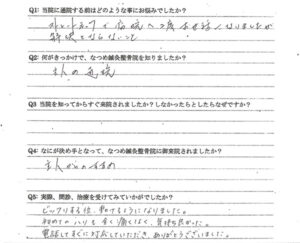 Q1: 当院に通院する前はどのような事にお悩みでしたか？
解決しなくて
Q2: 何がきっかけで、なつめ鍼灸整骨院を知りましたか？
主人の通院
Q3 当院を知ってからすぐ来院されましたか？しなかったらとしたらなぜですか？
Q4: なにが決め手となって、なつめ鍼灸整骨院に御来院されましたか？
主人からのすすめ
Q5: 実際、問診、治療を受けてみていかがでしたか？
ビックリする位、動けるようになりました。
初めてのハリも全く痛くなく、気持ち良かった。
電話してすぐに対応していただき、ありがとうございました。